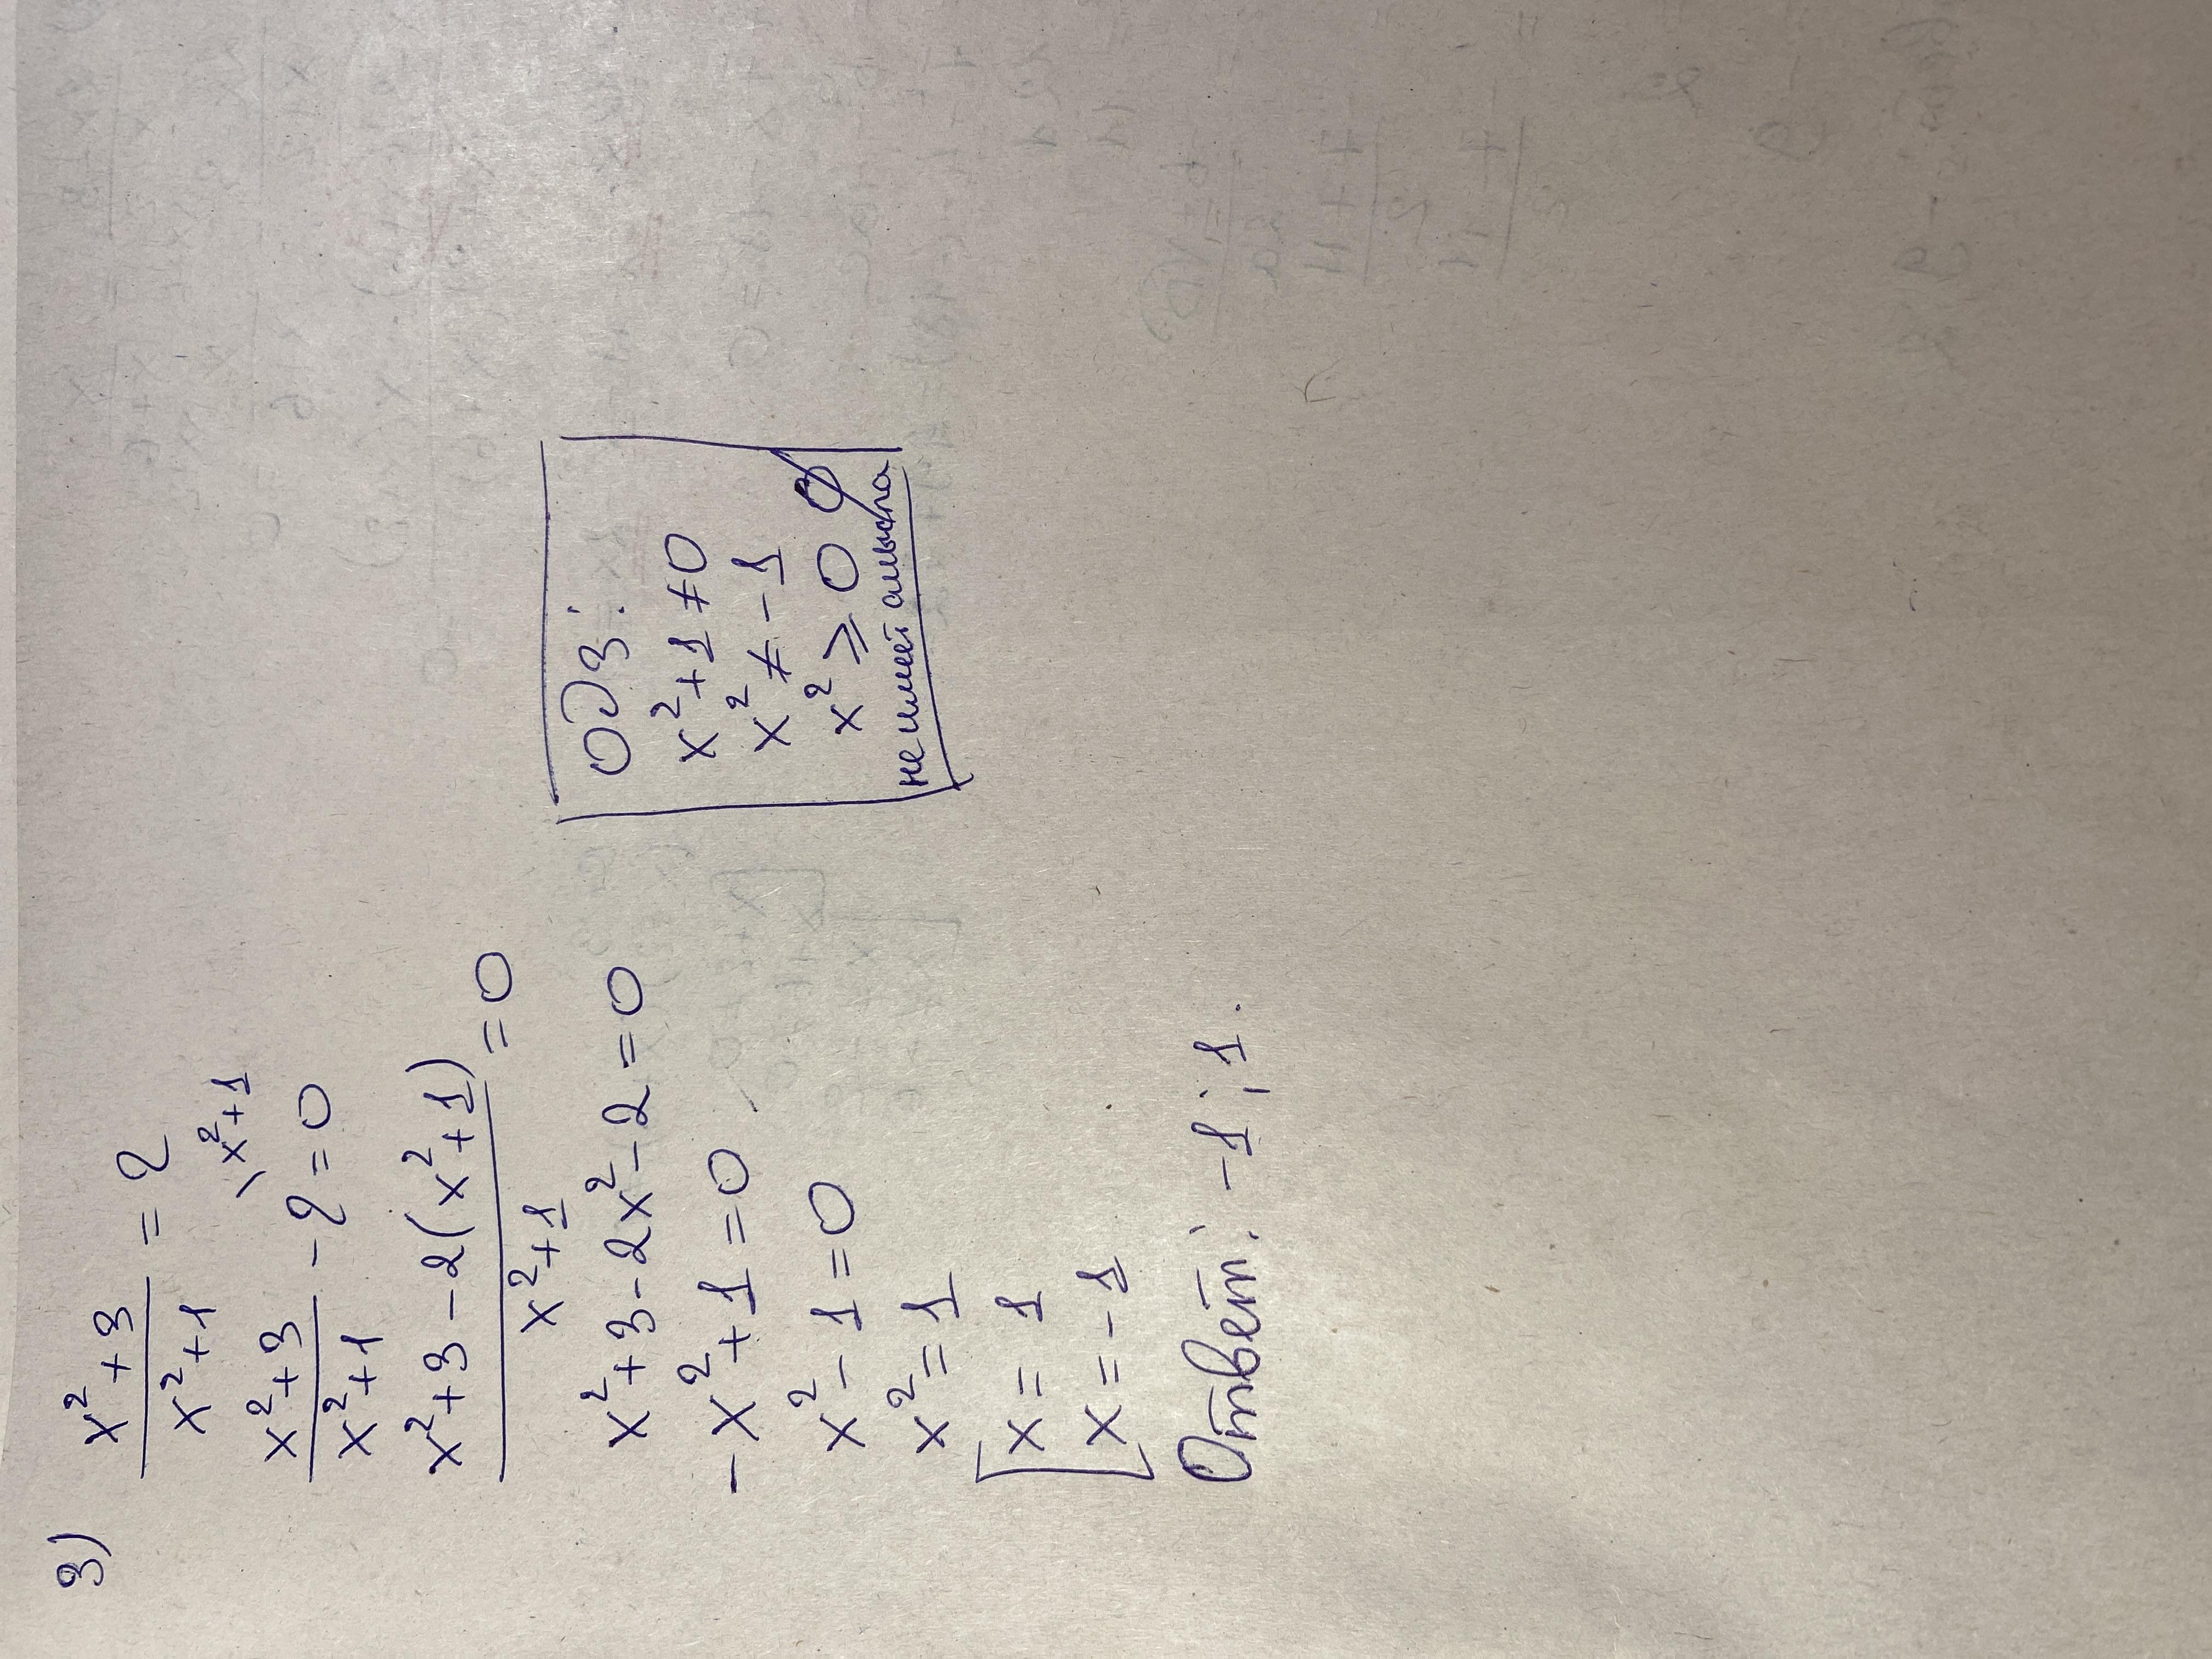 3)
x²+3 / x²+1 = 2
x²+3 / x²+1 - 2 \x²+1 = 0
x²+3-2(x²+1) / x²+1 = 0
x²+3-2x²-2=0
-x²+1=0
x²-1=0
x²=1
[x=1
x=-1
Ответ: -1; 1.
ОДЗ:
x²+1≠0
x²≠-1
x²⩾0 ∅
не имеет смысла